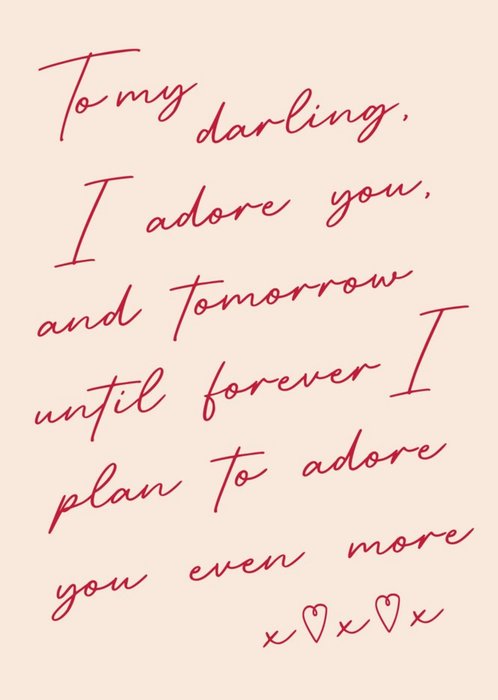 To my darling,
I adore you,
and tomorrow
until forever I
plan to adore
you even more
x♡x♡x